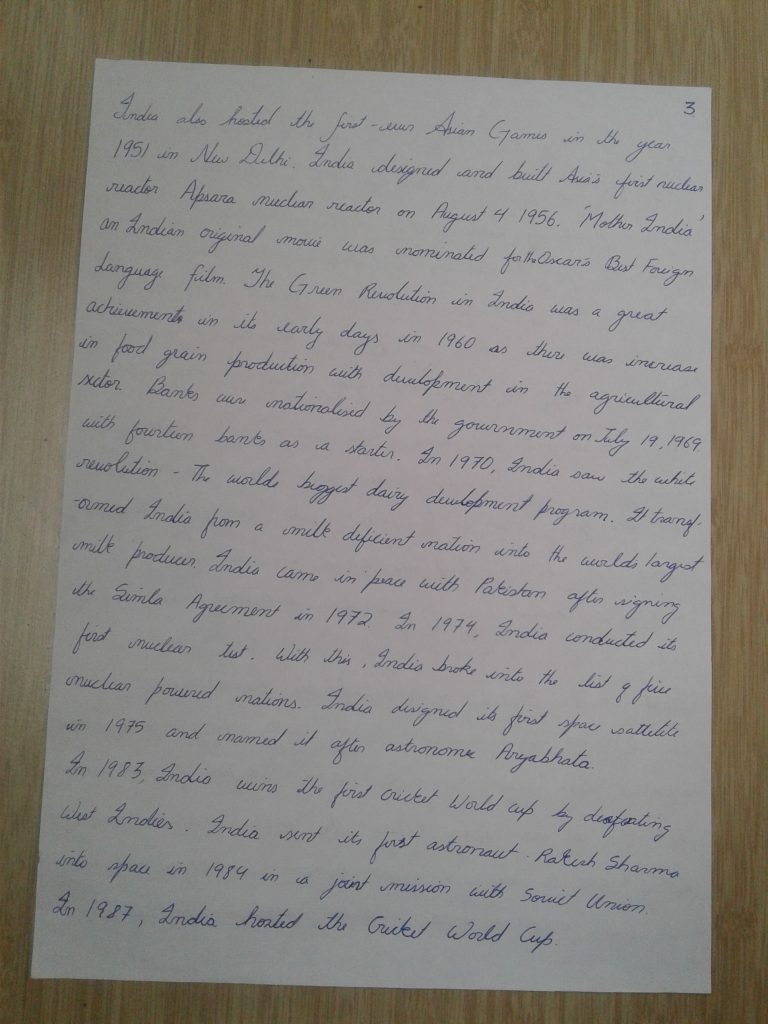 3
India also hosted the first-ever Asian Games in the year
1951 in New Delhi. India designed and built Asia's first nuclear
reactor Apsara nuclear reactor on August 4 1956. 'Mother India'
an Indian original movie was nominated for the Oscar's Best Foreign
Language film. The Green Revolution in India was a great
achievements in its early days in 1960 as there was increase
in food grain production with development in the agricultural
sector. Banks were nationalised by the government on July 19, 1969
with fourteen banks as a starter. In 1970, India saw the white
revolution - The worlds biggest dairy development program. It transf-
-ormed India from a milk deficient nation into the worlds largest
milk producer. India came in peace with Pakistan after signing
the Simla Agreement in 1972. In 1974, India conducted its
first nuclear test. With this, India broke into the list of five
nuclear powered nations. India designed its first space sattetite
in 1975 and named it after astronomer Aryabhata.
In 1983, India wins the first cricket World cup by deafeating
West Indies. India sent its first astronaut Rakesh Sharma
into space in 1984 in a joint mission with Soviet Union.
In 1987, India hosted the Cricket World Cup.